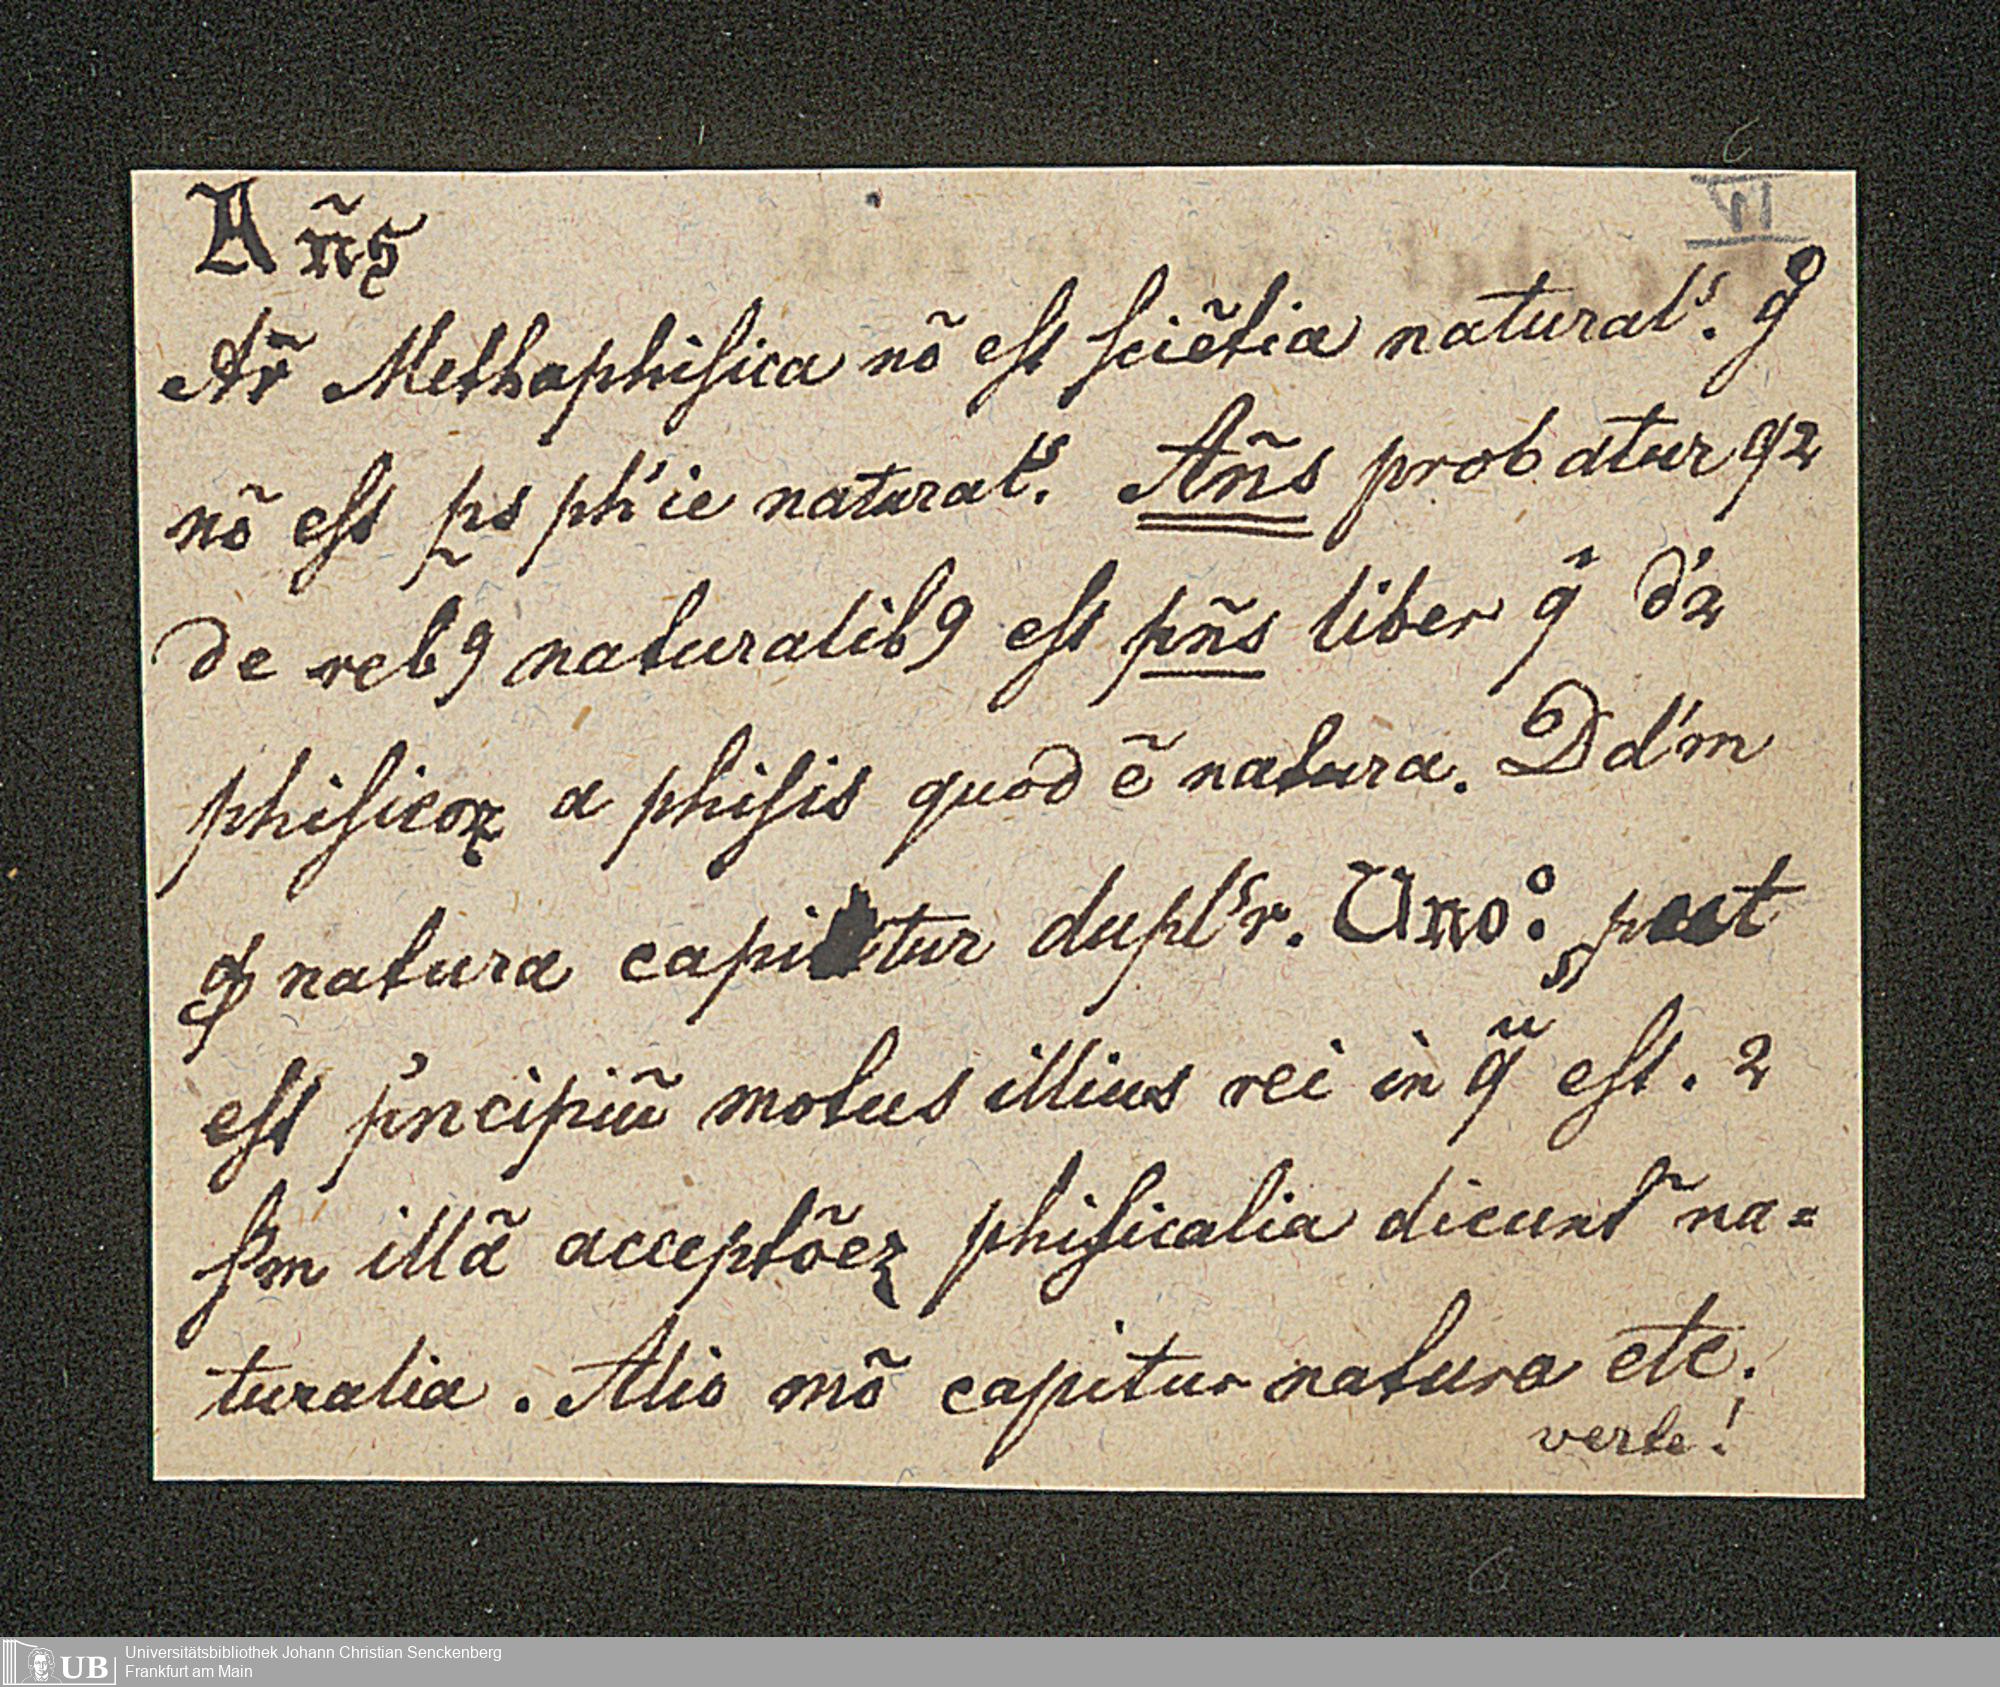 IV
Añs
Ar̃ Methaphisica nõ est sciẽtia naturalˢ. gͦ
nõ est p̃s ph'ie naturalˢ. Añs probatur qꝛ
de rebꝰ naturalibꝰ est pñs liber qͥ d'ꝛ
phisicoꝝ a phisis quod ẽ natura. Dd'm
ꝙ natura capitur dupl'r. Uno° put
est p'ncipiũ motus illius rei in qͧ est. 2
s'm illã acceptõeꝫ phisicalia dicunt̃ na=
turalia. Alio mõ capitur natura etc.
verte!
UB
Universitätsbibliothek Johann Christian Senckenberg
Frankfurt am Main